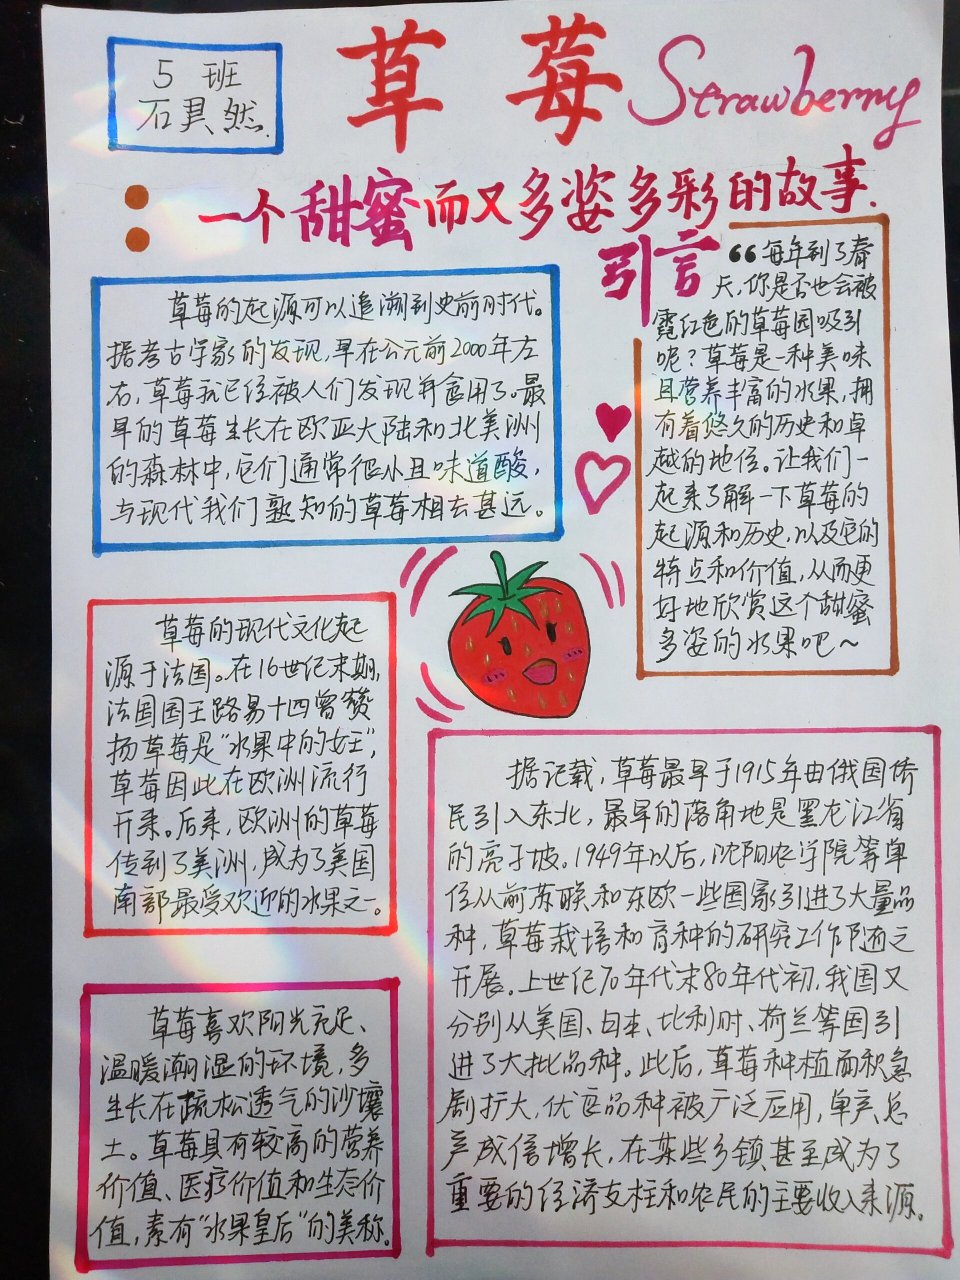 5 班
石具然.
草 莓 Strawberry
：一个甜蜜而又多姿多彩的故事.
引言
“每年到了春
天,你是否也会被
霓红色的草莓园吸引
呢？草莓是一种美味
且营养丰富的水果,拥
有着悠久的历史和卓
越的地位。让我们一
起来了解一下草莓的
起源和历史,以及它的
特点和价值,从而更
好地欣赏这个甜蜜
多姿的水果吧～
草莓的起源可以追溯到史前时代。
据考古学家的发现,早在公元前2000年左
右,草莓就已经被人们发现并食用了。最
早的草莓生长在欧亚大陆和北美洲
的森林中,它们通常很小且味道酸,
与现代我们熟知的草莓相去甚远。
草莓的现代文化起
源于法国。在16世纪末期,
法国国王路易十四曾赞
扬草莓是“水果中的女王”,
草莓因此在欧洲流行
开来。后来,欧洲的草莓
传到了美洲,成为了美国
南部最受欢迎的水果之一。
草莓喜欢阳光充足、
温暖潮湿的环境,多
生长在疏松透气的沙壤
土。草莓具有较高的营养
价值、医疗价值和生态价
值,素有“水果皇后”的美称.
据记载,草莓最早于1915年由俄国侨
民引入东北,最早的落角地是黑龙江省
的亮子坡。1949年以后,沈阳农学院等单
位从前苏联和东欧一些国家引进了大量品
种,草莓栽培和育种的研究工作随之
开展。上世纪70年代末80年代初,我国又
分别从美国、日本、比利时、荷兰等国引
进了大批品种。此后,草莓种植面积急
剧扩大,优良品种被广泛应用,单产、总
产成倍增长,在某些乡镇甚至成为了
重要的经济支柱和农民的主要收入来源.